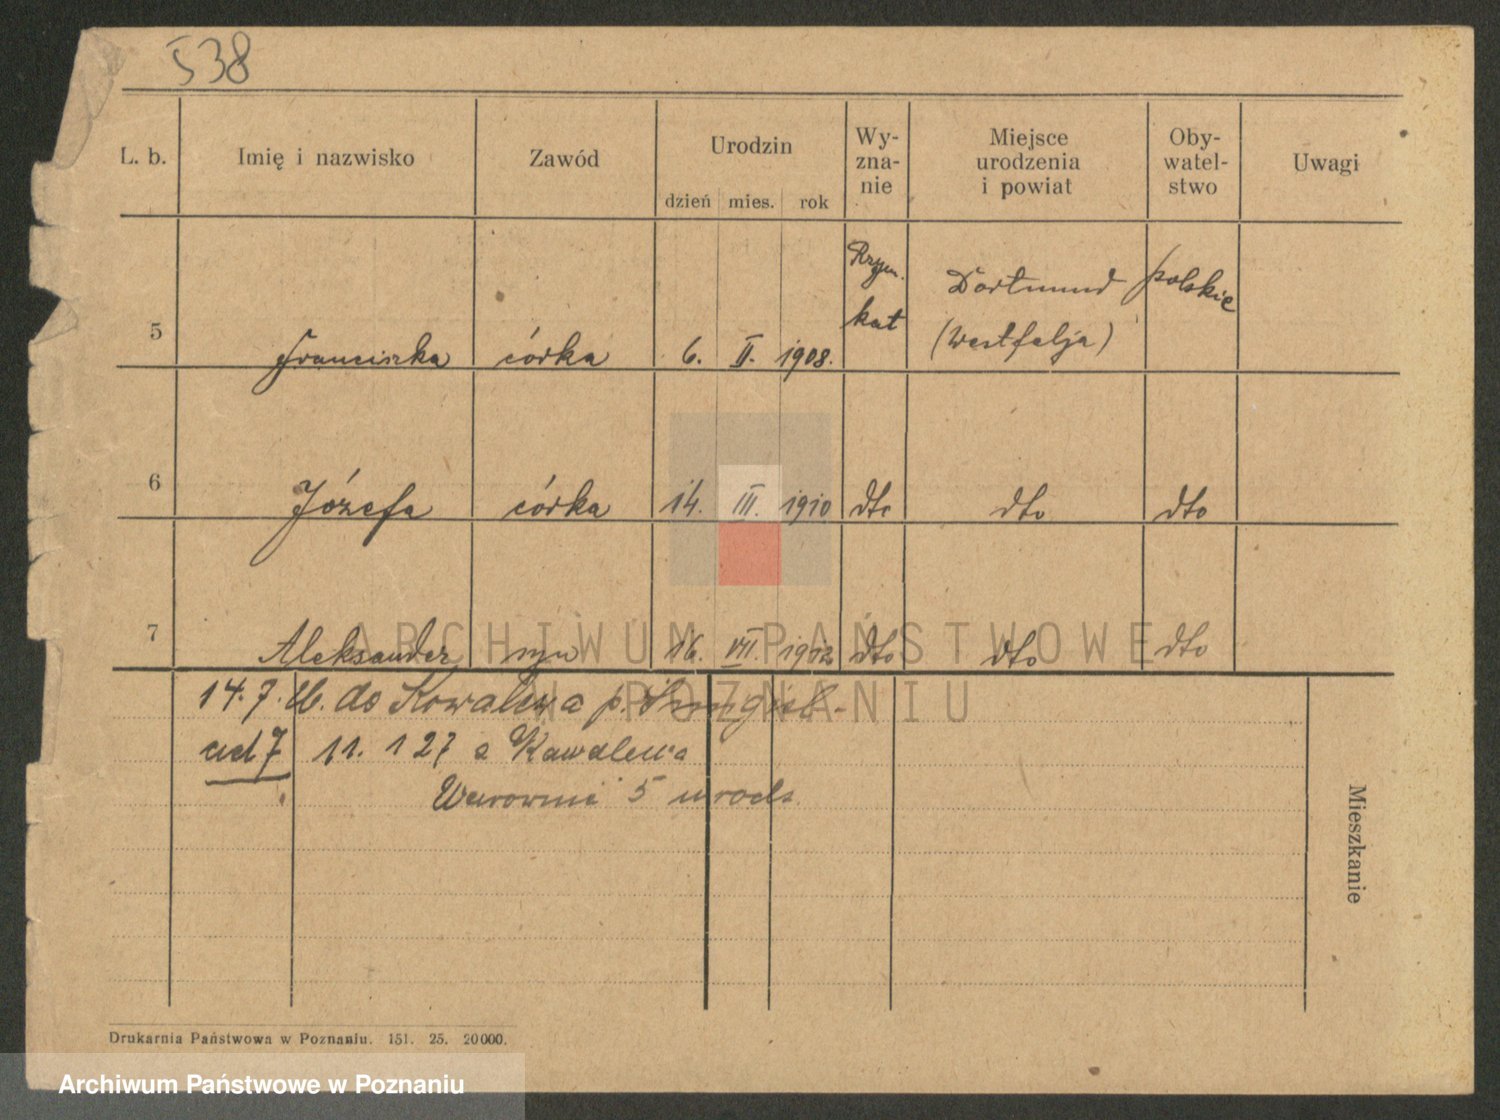 538
L. b. Imię i nazwisko Zawód Urodzin dzień mies. rok Wy-zna-nie Miejsce urodzenia i powiat Oby-watel-stwo Uwagi
5 Franciszka córka 6. II. 1908. Rzym. kat Dortmund (Westfalja) polskie
6 Józefa córka 14. III. 1910 dto dto dto
7 Aleksander syn 16. VII. 1912 dto dto dto
14. 7. do Kowalewa p.
ad 7 11. 1 27 z Kowalewa
5
Mieszkanie
Drukarnia Państwowa w Poznaniu. 151. 25. 20000.
ARCHIWUM PAŃSTWOWE
W POZNANIU
Archiwum Państwowe w Poznaniu